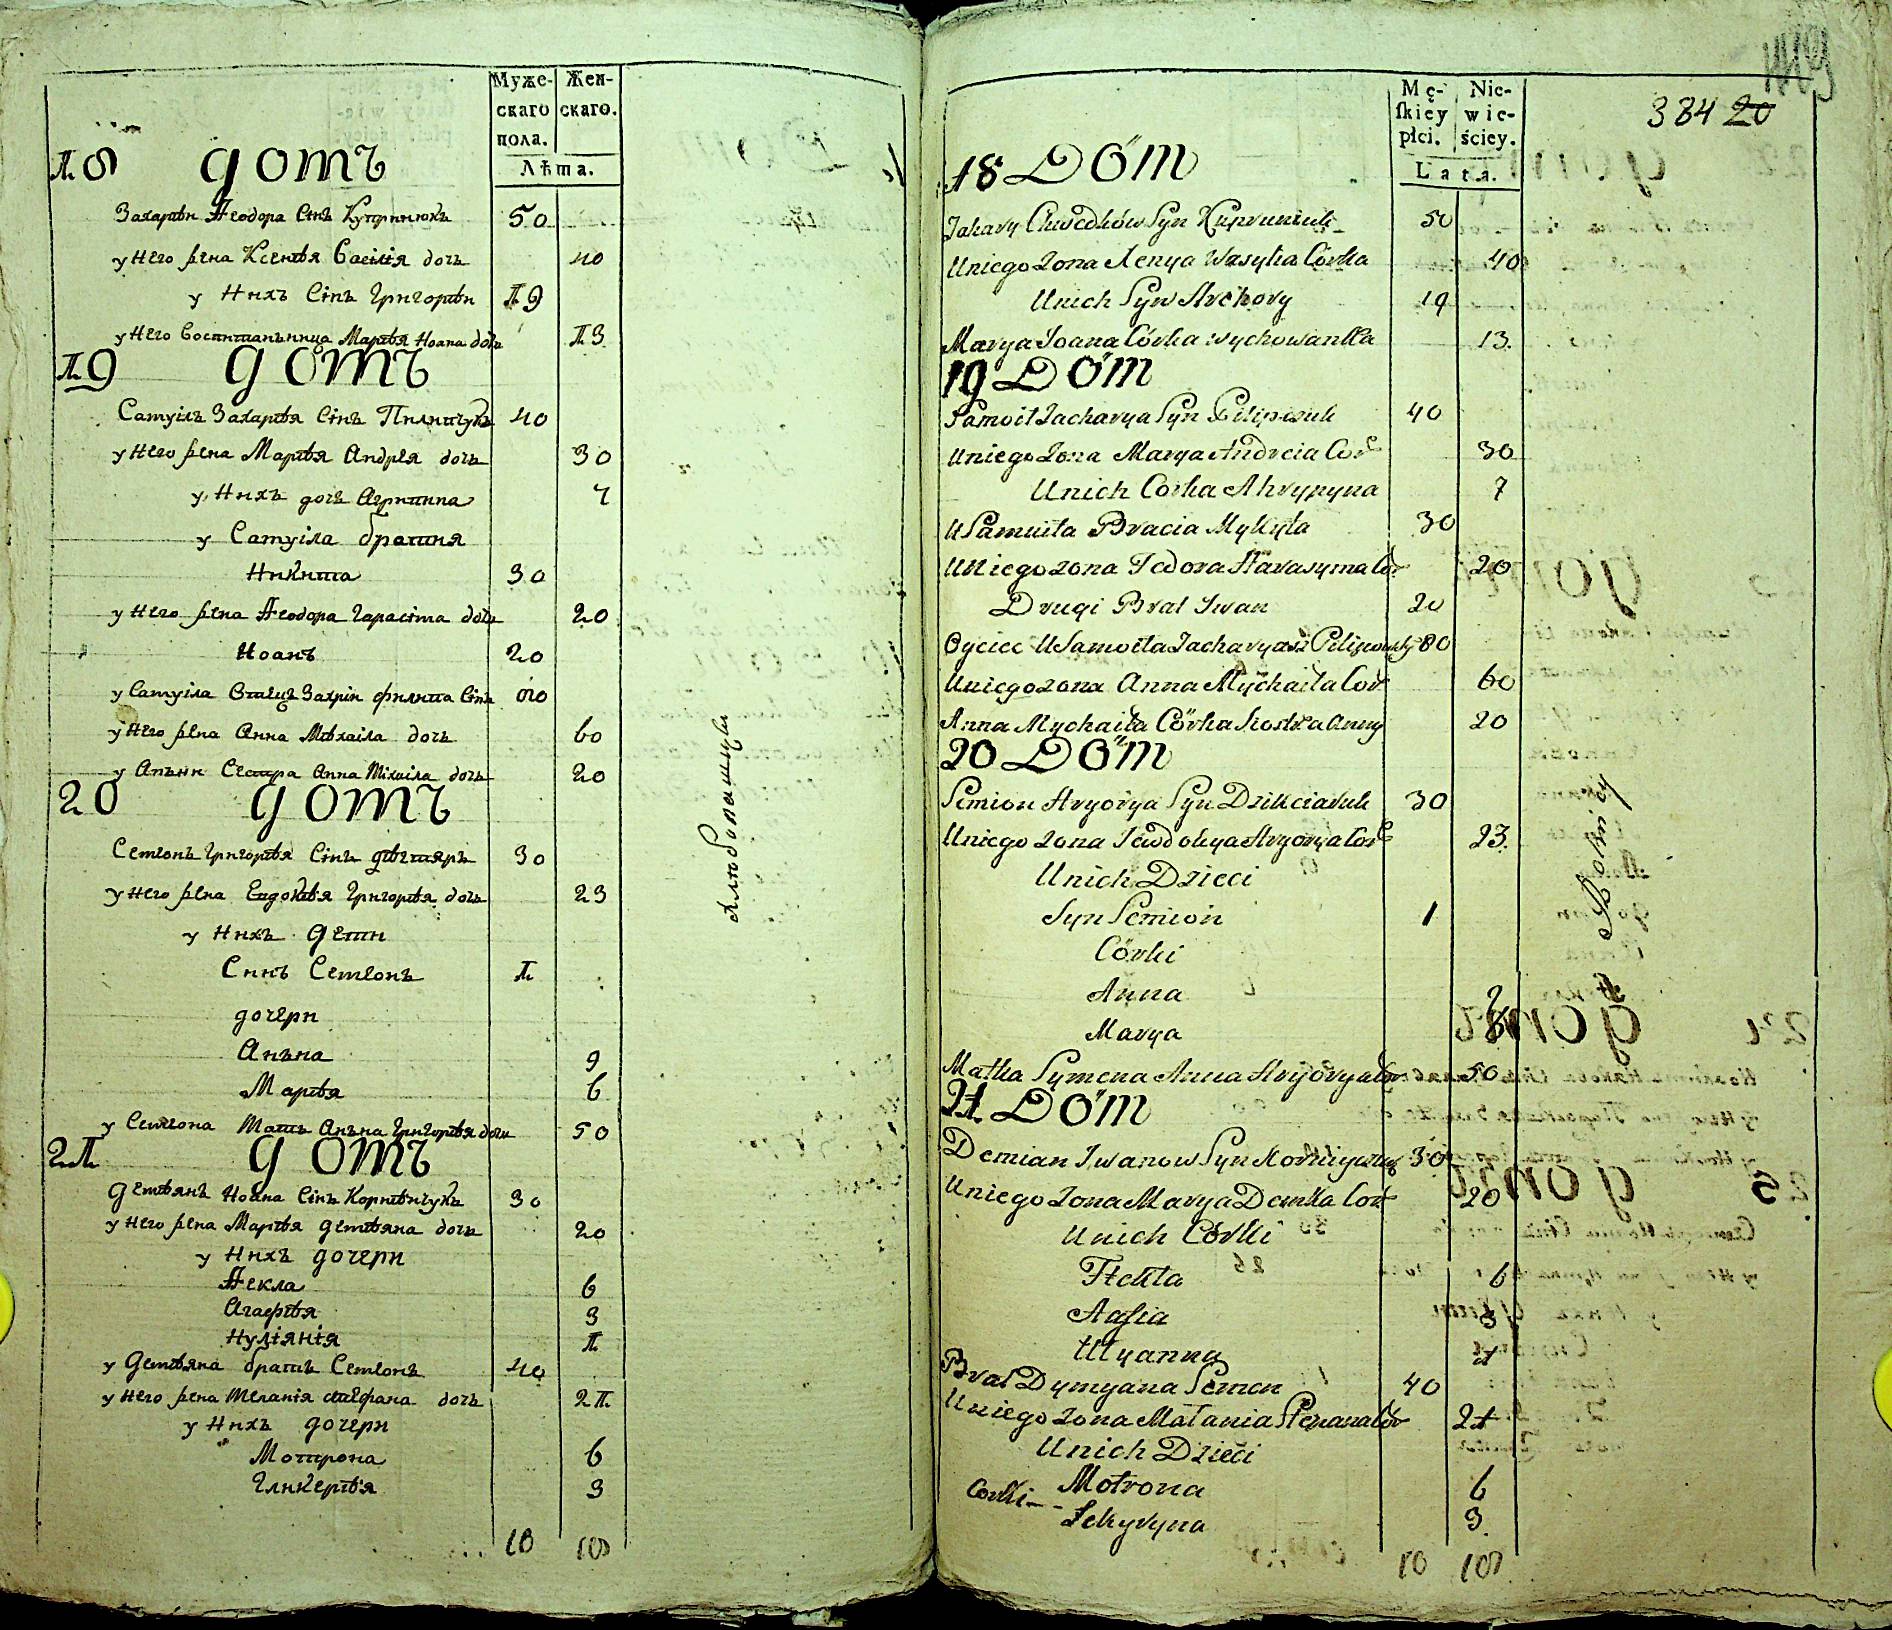 Муже-
скаго
пола.
Жен-
скаго.
Лѣта.
18 домъ
Захарѣи Ѳеодора Сінъ Купринюкъ 50
у Него жена Ксенѣя Василія дочь 40
у Нихъ Сінъ Григорѣи 19
у Него Воспитанъница Марѣя Иоана дочь 13
19 домъ
Самуілъ Захарѣя Сінъ Пилипчукъ 40
у Него жена Марѣя Андрея дочь 30
у Нихъ дочь Агрипина 7
у Самуіла братия
Никита 30
у Него жена Ѳеодора Гарасіма дочь 20
Иоанъ 20
у Самуіла Отецъ Захрія Филипа Сінъ 80
у Него жена Анна Мѣхаіла дочь 60
у Анъни Сестра Анна Міхаіла дочь 20
20 домъ
Семѣонъ Григорѣя Сінъ дѣгтяръ 30
у Него жена Евдокѣя Григорѣя дочь 23
у Нихъ дети
Синъ Семѣонъ 1
дочери
Анъна 9
Марѣя 6
у Семеона Мать Анъна Григорѣя дочь 50
21 домъ
Демѣянъ Иоана Сінъ Корнѣичукъ 30
у Него жена Марѣя демѣяна дочь 20
у Нихъ дочери
Ѳекла 6
Агафѣя 3
Иуліянія 1
у Демѣяна братъ Семеонъ 40
у Него жена Меланія Стефана дочь 21
у Нихъ дочери
Мотрона 6
Гликерѣя 3
10 18
Mę-
skiey
płci.
Nie-
wie-
ściey.
Lata.
384 20
18 Dom
Zahary Chwedków Syn Kupruniuk 50
Uniego Zona Xenya Wasyla Córka 40
Unich Syn Arehory 19
Marya Joana Córka wychowanka 13
19 Dom
Samoił Zacharya Syn Pilipczuk 40
Uniego Zona Marya Andreia Cor 30
Unich Corka Ahrypyna 7
U Samuiła Bracia Mykyta 30
Uniego zona Fedora Harasyma Cor 20
Drugi Brat Iwan 20
Oyciec U Samoiła Zacharyasz 80
Uniego zona Anna Mychaiła Cor 60
Anna Mychaiła Córka Siostra Anny 20
20 Dom
Semion Hryorya Syn 30
Uniego Zona Jewdokya Hryorya Cor 23
Unich Dzieci
Syn Semion 1
Córki
Anna 9
Marya 6
Matka Symena Anna Hryorya Cor 50
21 Dom
Demian Iwanow Syn Korniyczuk 30
Uniego Zona Marya Demka Cor 20
Unich Córki
Thekla 6
Aafia 3
Ulyanna 1
Brat Dymyana Semen 40
Uniego zona Małania Stepana Cór 21
Unich Dzieci
Motrona 6
Corki
3
10 18